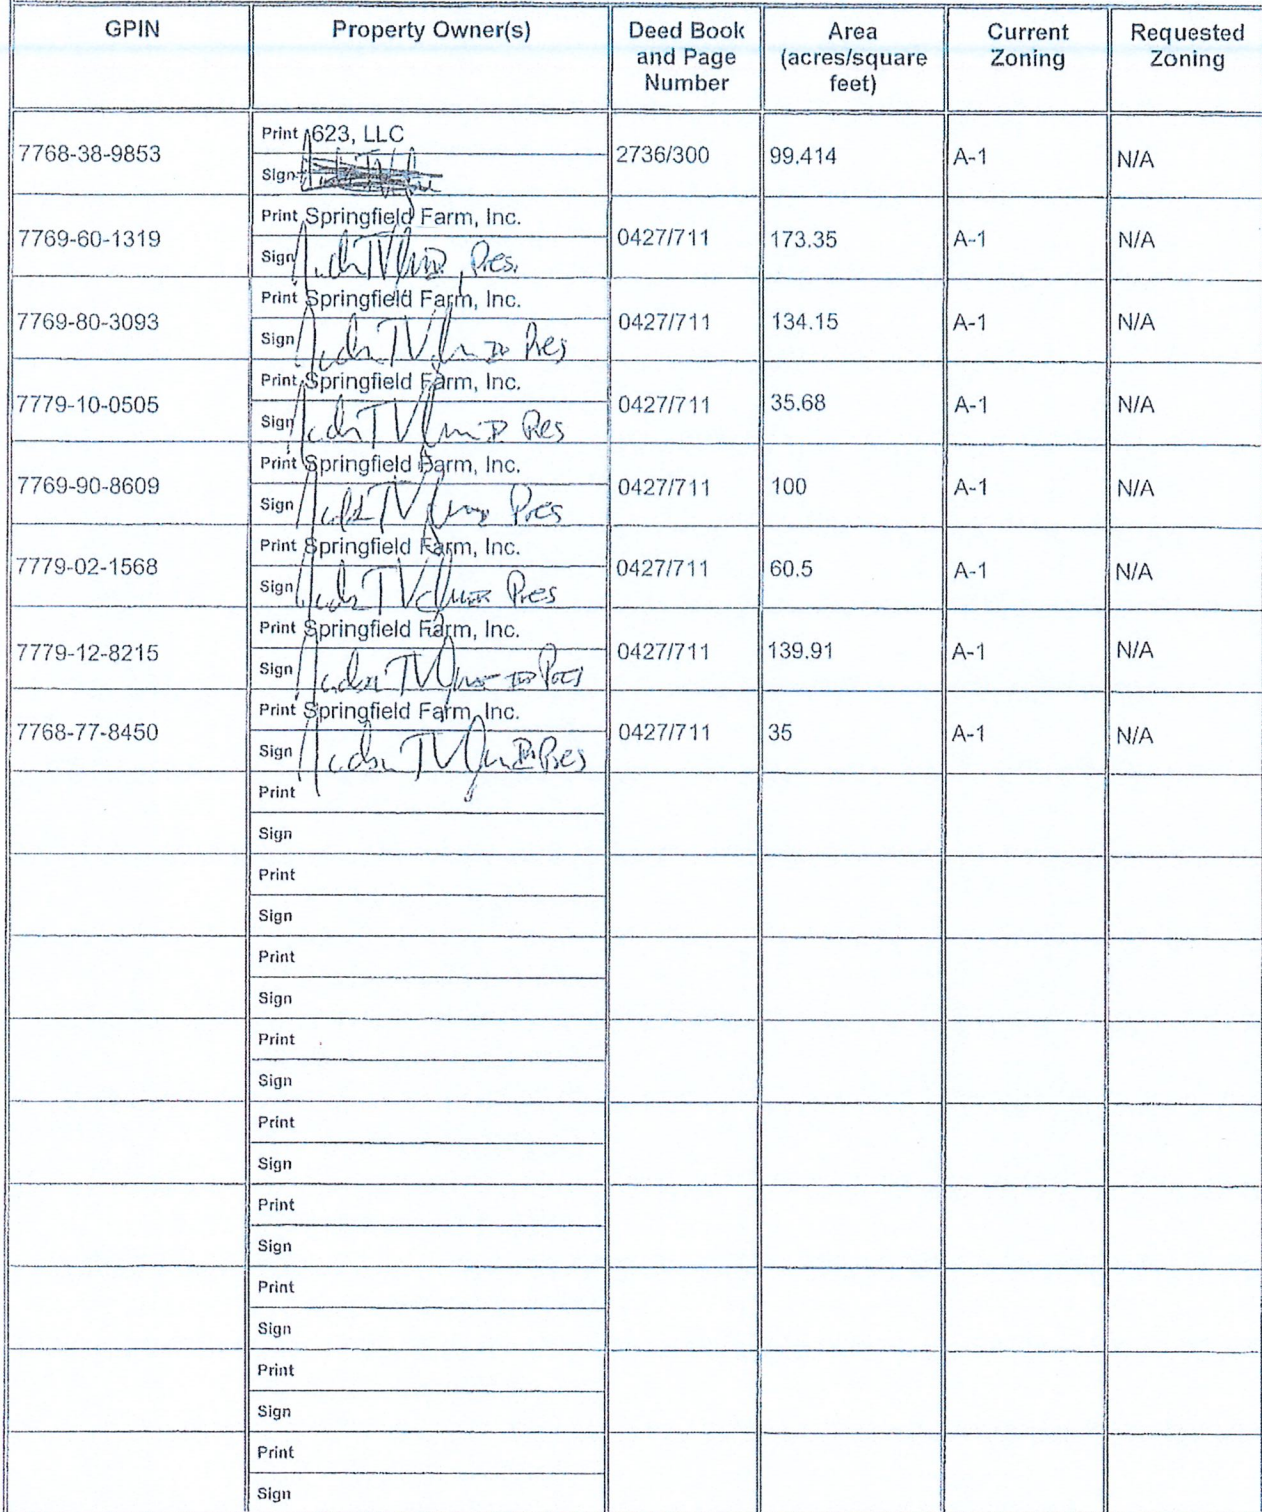 GPIN
Property Owner(s)
Deed Book
and Page
Number
Area
(acres/square
feet)
Current
Zoning
Requested
Zoning
7768-38-9853
Print 623, LLC
Sign
2736/300
99.414
A-1
N/A
7769-60-1319
Print Springfield Farm, Inc.
Sign Pres.
0427/711
173.35
A-1
N/A
7769-80-3093
Print Springfield Farm, Inc.
Sign Pres
0427/711
134.15
A-1
N/A
7779-10-0505
Print Springfield Farm, Inc.
Sign Pres
0427/711
35.68
A-1
N/A
7769-90-8609
Print Springfield Farm, Inc.
Sign Pres
0427/711
100
A-1
N/A
7779-02-1568
Print Springfield Farm, Inc.
Sign Pres
0427/711
60.5
A-1
N/A
7779-12-8215
Print Springfield Farm, Inc.
Sign Pres
0427/711
139.91
A-1
N/A
7768-77-8450
Print Springfield Farm, Inc.
Sign Pres
0427/711
35
A-1
N/A
Print
Sign
Print
Sign
Print
Sign
Print
Sign
Print
Sign
Print
Sign
Print
Sign
Print
Sign
Print
Sign